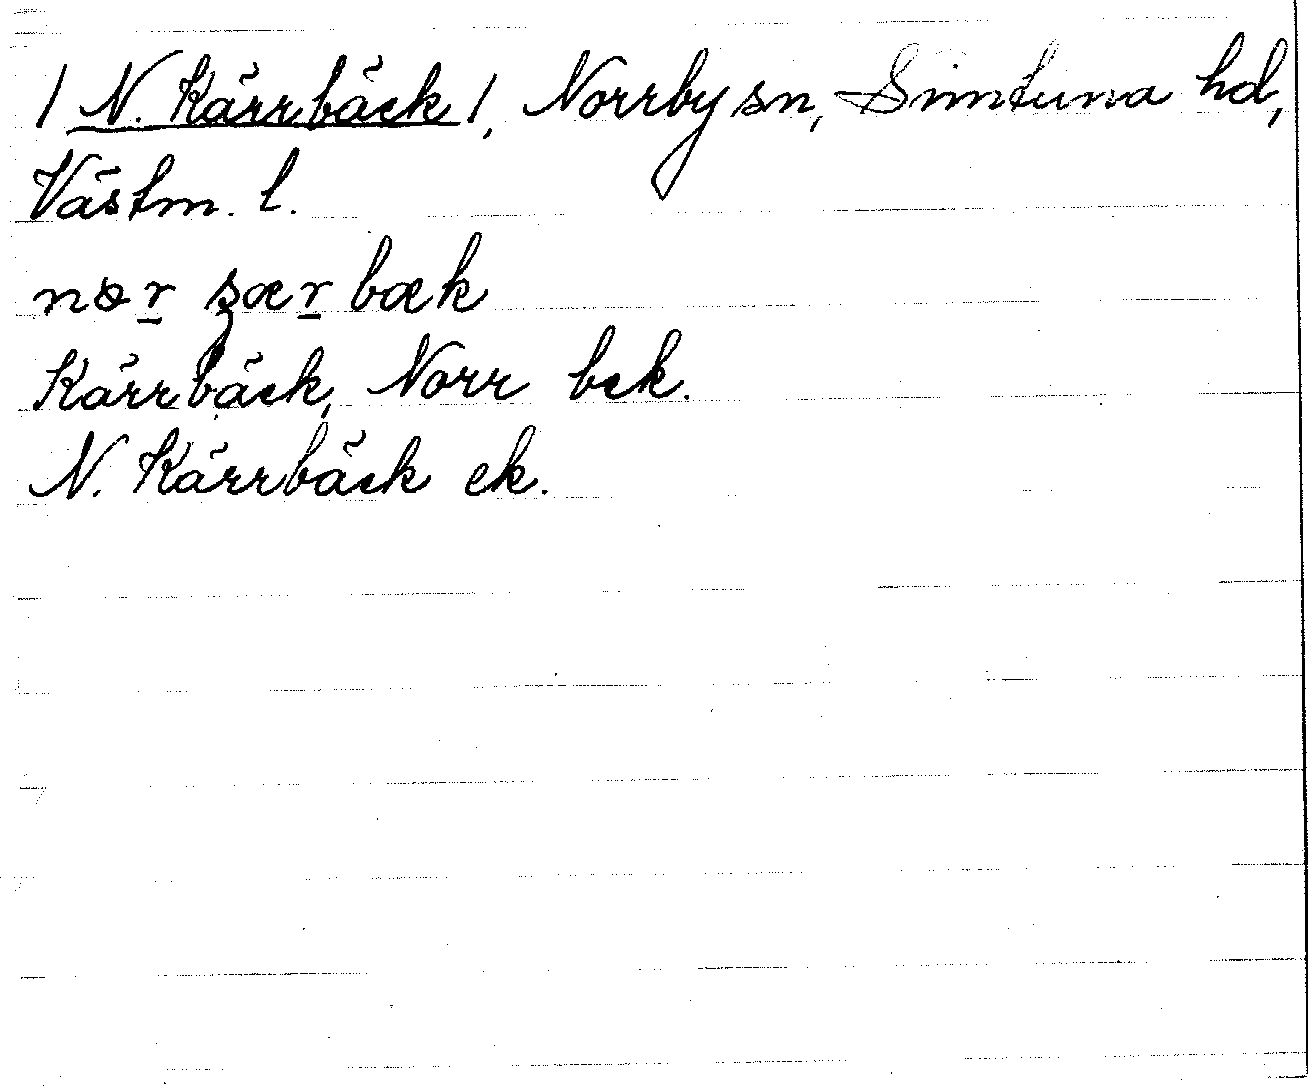 / N. Kärrbäck /, Norrby sn, Simtuna hd,
Västm. l.
bæk
Kärrbäck, Norr bek.
N. Kärrbäck ek.